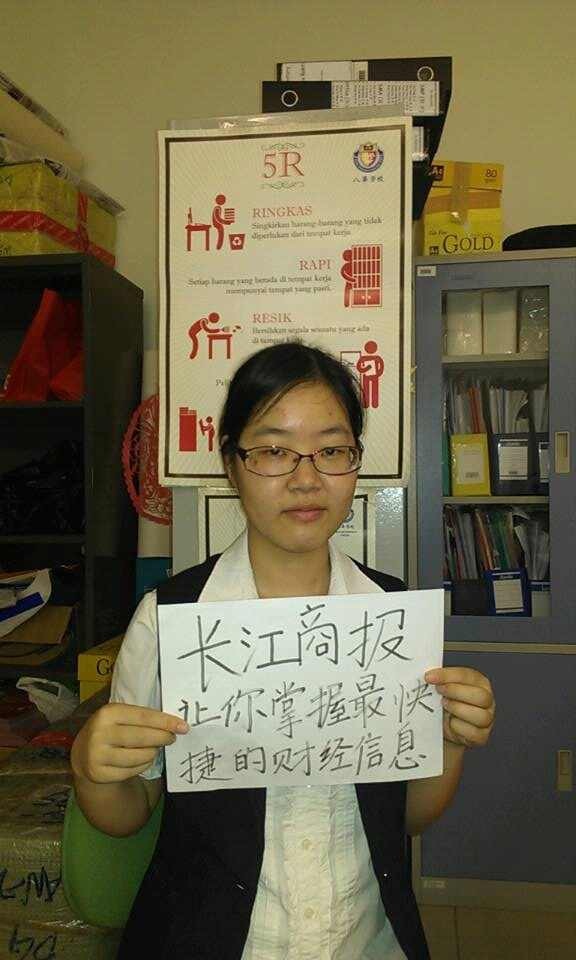 5R
八华学校
RINGKAS
Singkirkan barang-barang yang tidak
diperlukan dari tempat kerja
RAPI
Setiap barang yang berada di tempat kerja
mempunyai tempat yang pasti.
RESIK
Bersihkan segala sesuatu yang ada
di tempat kerja.
A4
80
GOLD
长江商报
让你掌握最快
捷的财经信息